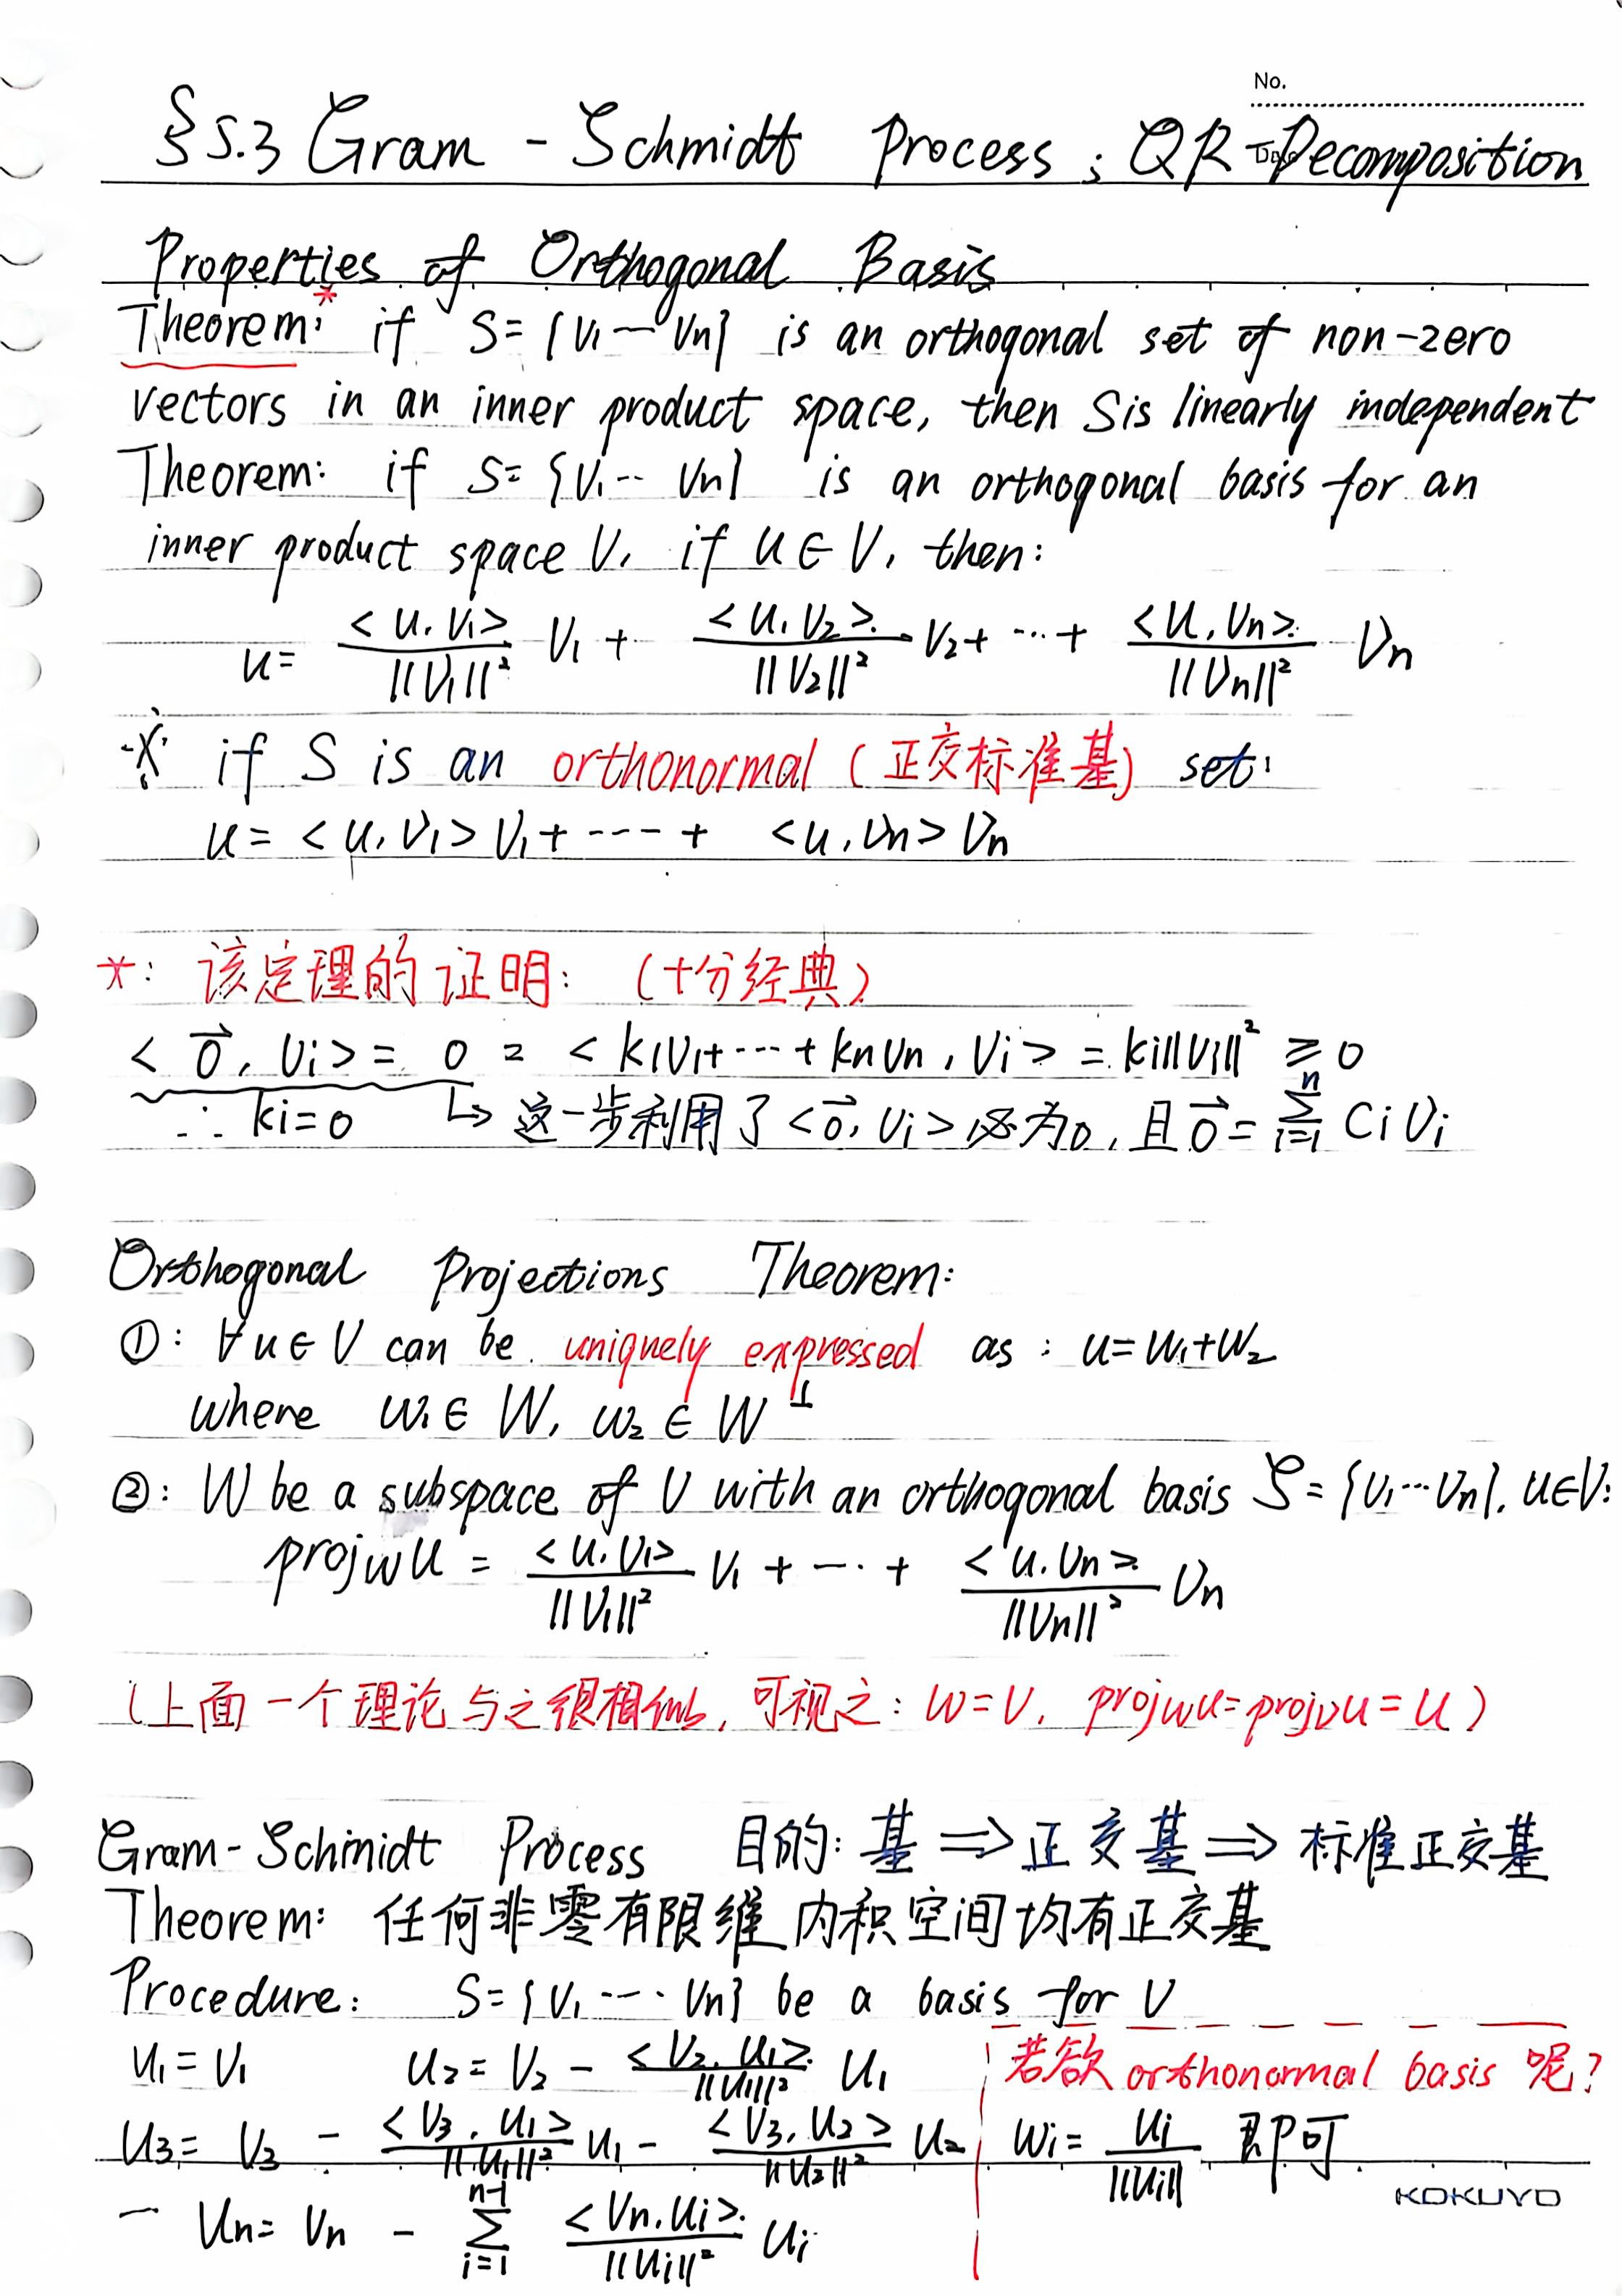 No.
Date
§5.3 Gram-Schmidt Process; QR-Decomposition
Properties of Orthogonal Basis
Theorem*: if S={v₁—vₙ} is an orthogonal set of non-zero
vectors in an inner product space, then S is linearly independent
Theorem: if S={v₁--vₙ} is an orthogonal basis for an
inner product space V, if u∈V, then:
u= <u,v₁>/||v₁||² v₁ + <u,v₂>/||v₂||² v₂ + ⋯ + <u,vₙ>/||vₙ||² vₙ
※ if S is an orthonormal (正交标准基) set:
u = <u,v₁>v₁+ ---- + <u,vₙ>vₙ
*: 该定理的证明: (十分经典)
<0⃗, vᵢ> = 0 = <k₁v₁+⋯+kₙvₙ, vᵢ> = kᵢ||vᵢ||² ≥0
∴ kᵢ=0 ↳ 这一步利用了<0⃗, vᵢ>必为0, 且0⃗ = ∑ⁿᵢ₌₁ Cᵢvᵢ
Orthogonal Projections Theorem:
①: ∀u∈V can be uniquely expressed as: u=w₁+w₂
where w₁∈W, w₂∈W⊥
②: W be a subspace of V with an orthogonal basis S={v₁⋯vₙ}, u∈V:
projwu = <u,v₁>/||v₁||² v₁ + ⋯ + <u,vₙ>/||vₙ||² vₙ
(上面一个理论与之很相似, 可视之: W=V, projwu=projvu=u)
Gram-Schmidt Process 目的: 基⇒正交基⇒标准正交基
Theorem: 任何非零有限维内积空间均有正交基
Procedure: S={v₁---·vₙ} be a basis for V
u₁=v₁ u₂=v₂ - <v₂,u₁>/||u₁||² u₁
u₃= v₃ - <v₃,u₁>/||u₁||² u₁ - <v₃,u₂>/||u₂||² u₂
— uₙ= vₙ - ∑ⁿ⁻¹ᵢ₌₁ <vₙ,uᵢ>/||uᵢ||² uᵢ
若欲orthonormal basis呢?
wᵢ= uᵢ/||uᵢ|| 即可
KOKUYO